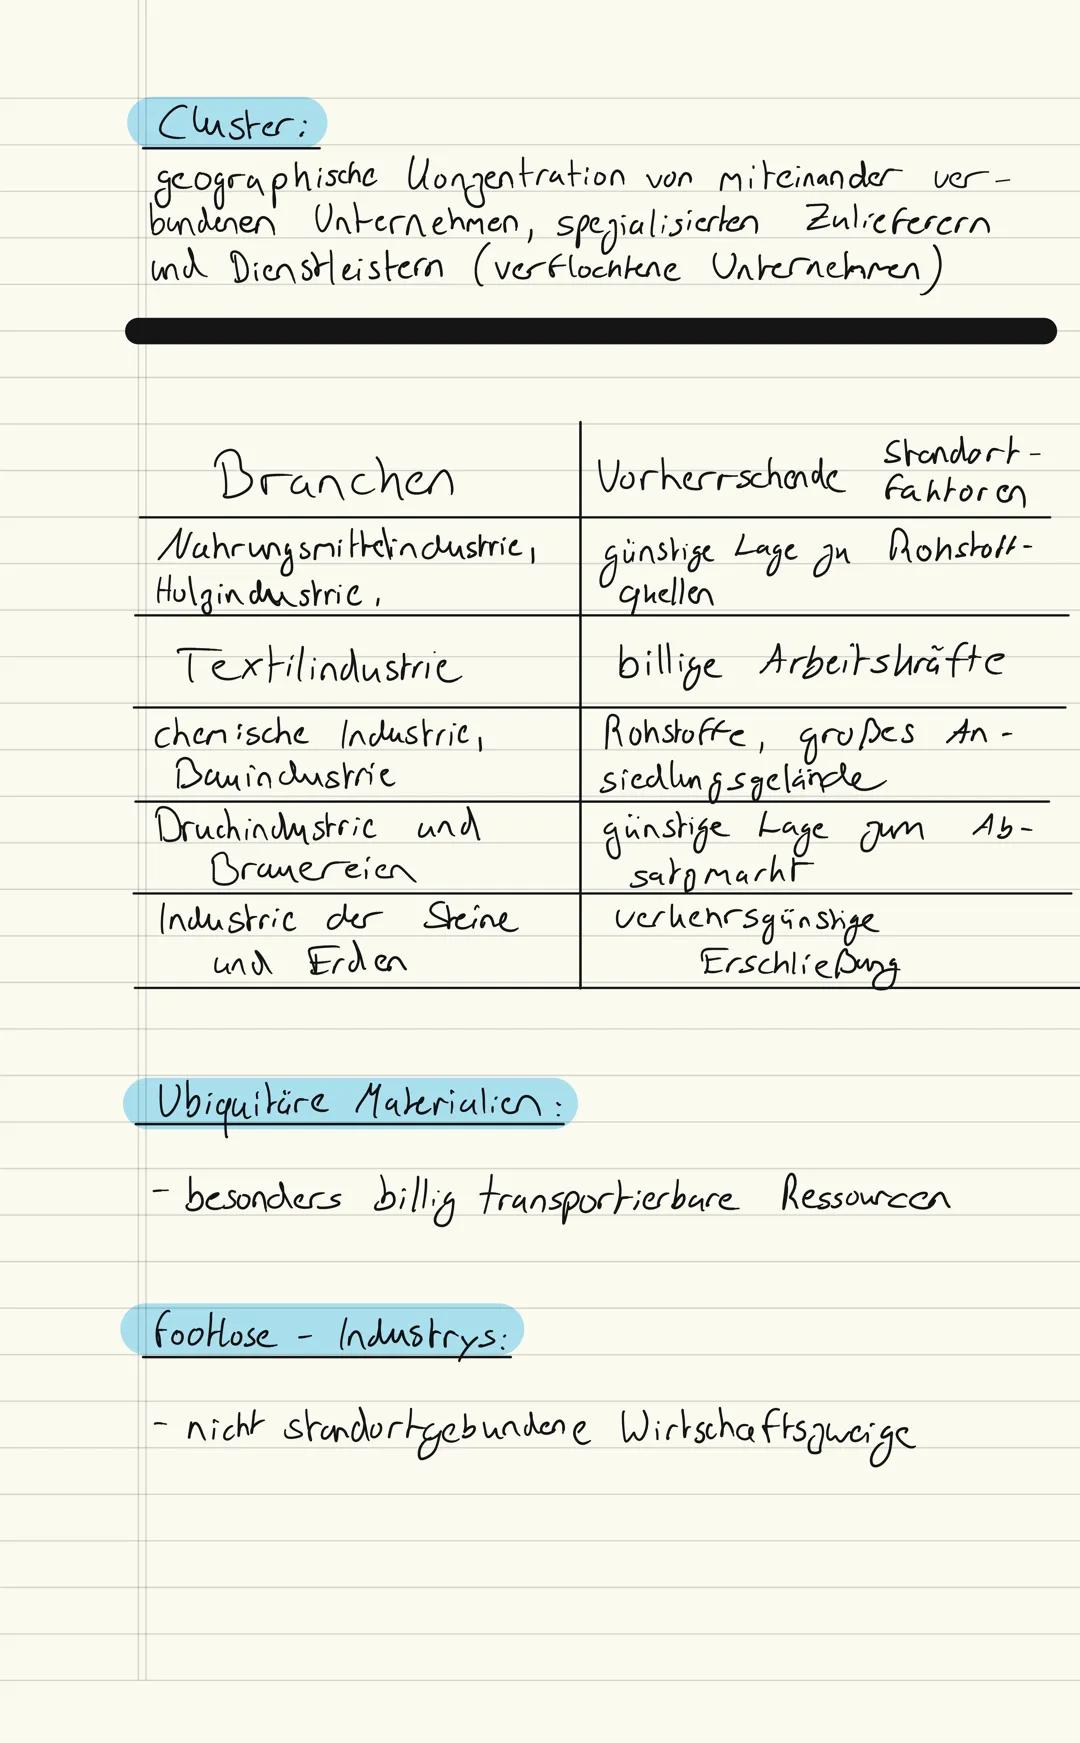 Cluster:
geographische Konzentration von miteinander ver-
bundenen Unternehmen, spezialisierten Zulieferern
und Dienstleistern (verflochtene Unternehmen)
Branchen
Vorherrschende Standort-
faktoren
Nahrungsmittelindustrie,
Holzindustrie,
günstige Lage zu Rohstoff-
quellen
Textilindustrie
billige Arbeitskräfte
chemische Industrie,
Bauindustrie
Rohstoffe, großes An-
siedlungsgelände
Druckindustrie und
Brauereien
günstige Lage zum Ab-
satzmarkt
Industrie der Steine
und Erden
verkehrsgünstige
Erschließung
Ubiquitäre Materialien:
- besonders billig transportierbare Ressourcen
footlose - Industrys:
- nicht standortgebundene Wirtschaftszweige